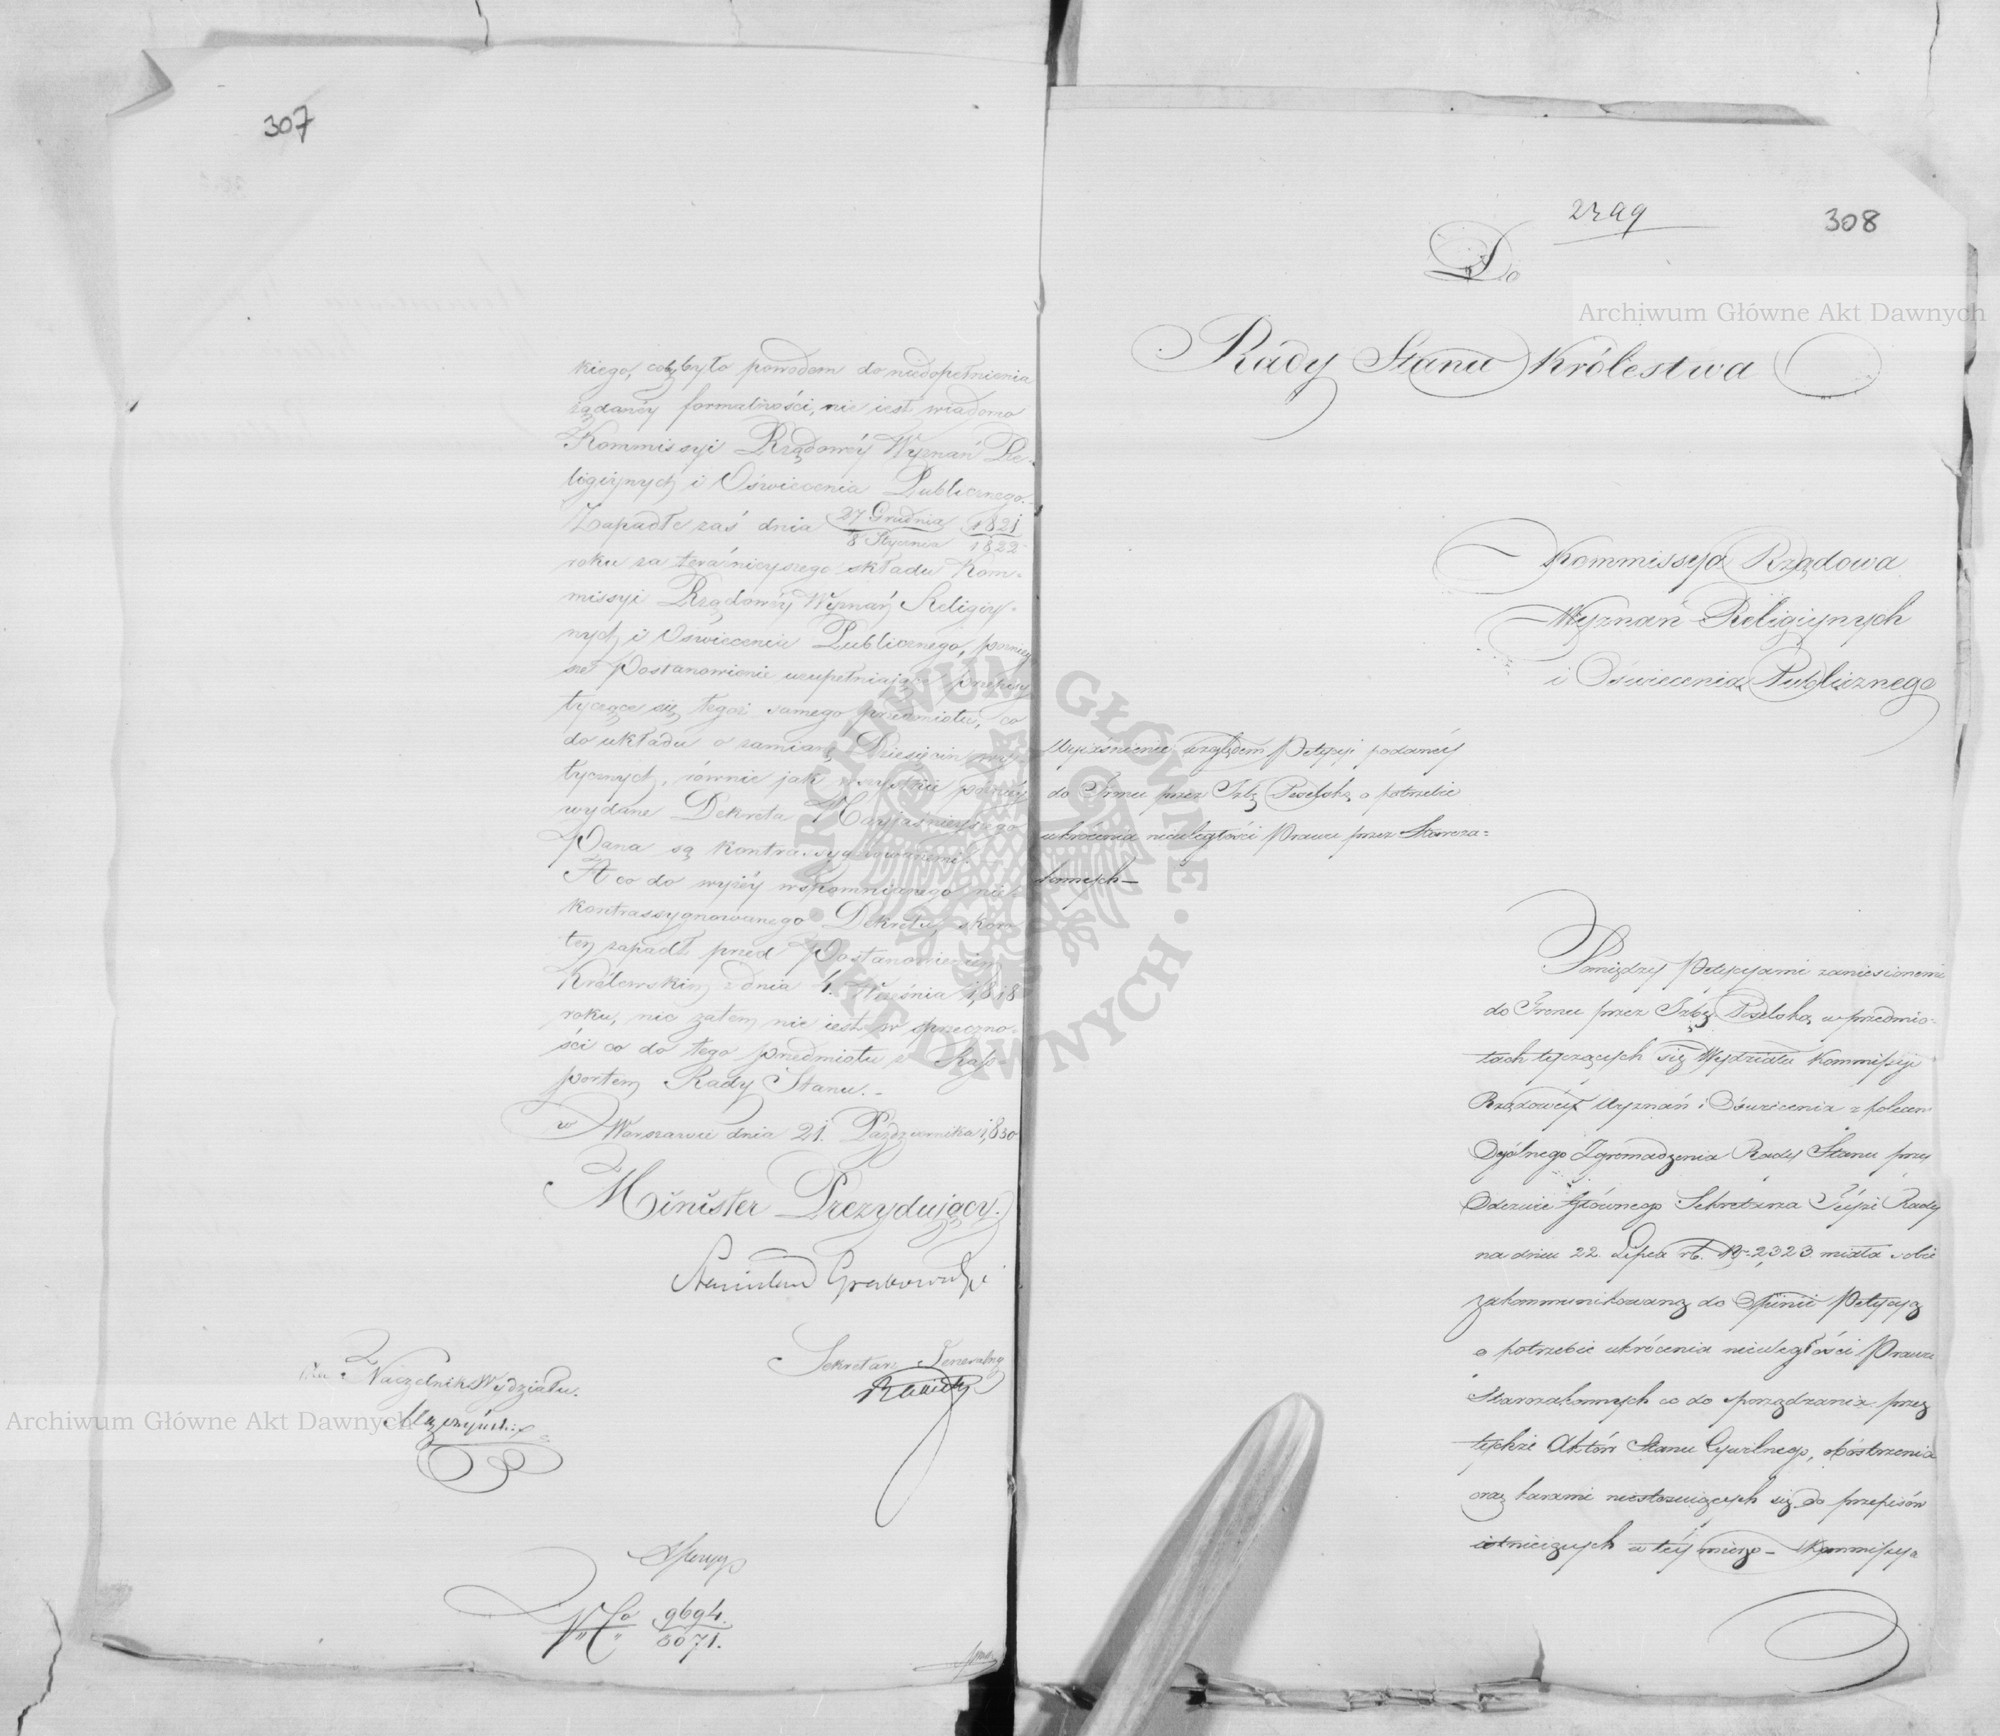 307
kiego, coby było powodem do niedopełnienia
żądanéy formalności, nie iest wiadomo
Kommissyi Rządowéy Wyznań Re-
ligiynych i Oświecenia Publicznego.-
Zapadłe zaś dnia 27 Grudnia 1821
8 Stycznia 1822
roku za teraźnieyszego składu Kom-
missyi Rządowéy Wyznań Religiy-
nych i Oświecenia Publicznego,
Postanowienie uzupełniaiące przepisy
tyczące się tegoż samego przedmiotu, co
do układu o zamianę Dziesięcin
tycznych, równie jak wszystkie
wydane Dekreta Nayjaśnieyszego
Pana są kontrassygnowanemi.
A co do wyżéy wspomnianego nie
kontrassygnowanego Dekretu, skoro
ten zapadł przed Postanowieniem
Królewskim z dnia 4. Września 1818
roku, nic zatem nie iest w sprzeczno-
ści co do tego przedmiotu z Rap-
portem Rady Stanu.-
w Warszawie dnia 21. Października 1830
Minister Prezyduiący.
Stanisław Grabowski
Sekretarz Generalny
Naczelnik Wydziału.
No 9694.
5071.
308
2399
Do
Rady Stanu Królestwa
Kommissya Rządowa
Wyznań Religiynych
i Oświecenia Publicznego
Wyiaśnienie względem Petycyi podanéy
do Tronu przez Izbę Poselską o potrzebie
ukrócenia nieuległości Prawu przez Staroza=
konnych —
Pomiędzy Petycyami zaniesionemi
do Tronu przez Izbę Poselską w przedmio-
tach tyczących się Wydziału Kommissyi
Rządowéy Wyznań i Oświecenia z polecenia
Ogólnego Zgromadzenia Rady Stanu przy
Odezwie Głównego Sekretarza Teyże Rady
na dniu 22. Lipca rb. No 2,323 miała sobie
zakommunikowaną do Opinii Petycyą
o potrzebie ukrócenia nieuległości Prawu
Starozakonnych co do sporządzania przez
tychże Aktów Stanu Cywilnego, obostrzenia
oraz karami niestosuiących się do przepisów
istnieiących w téy mierze – Kommissya
Archiwum Główne Akt Dawnych
Archiwum Główne Akt Dawnych
ARCHIWUM GŁÓWNE AKT DAWNYCH